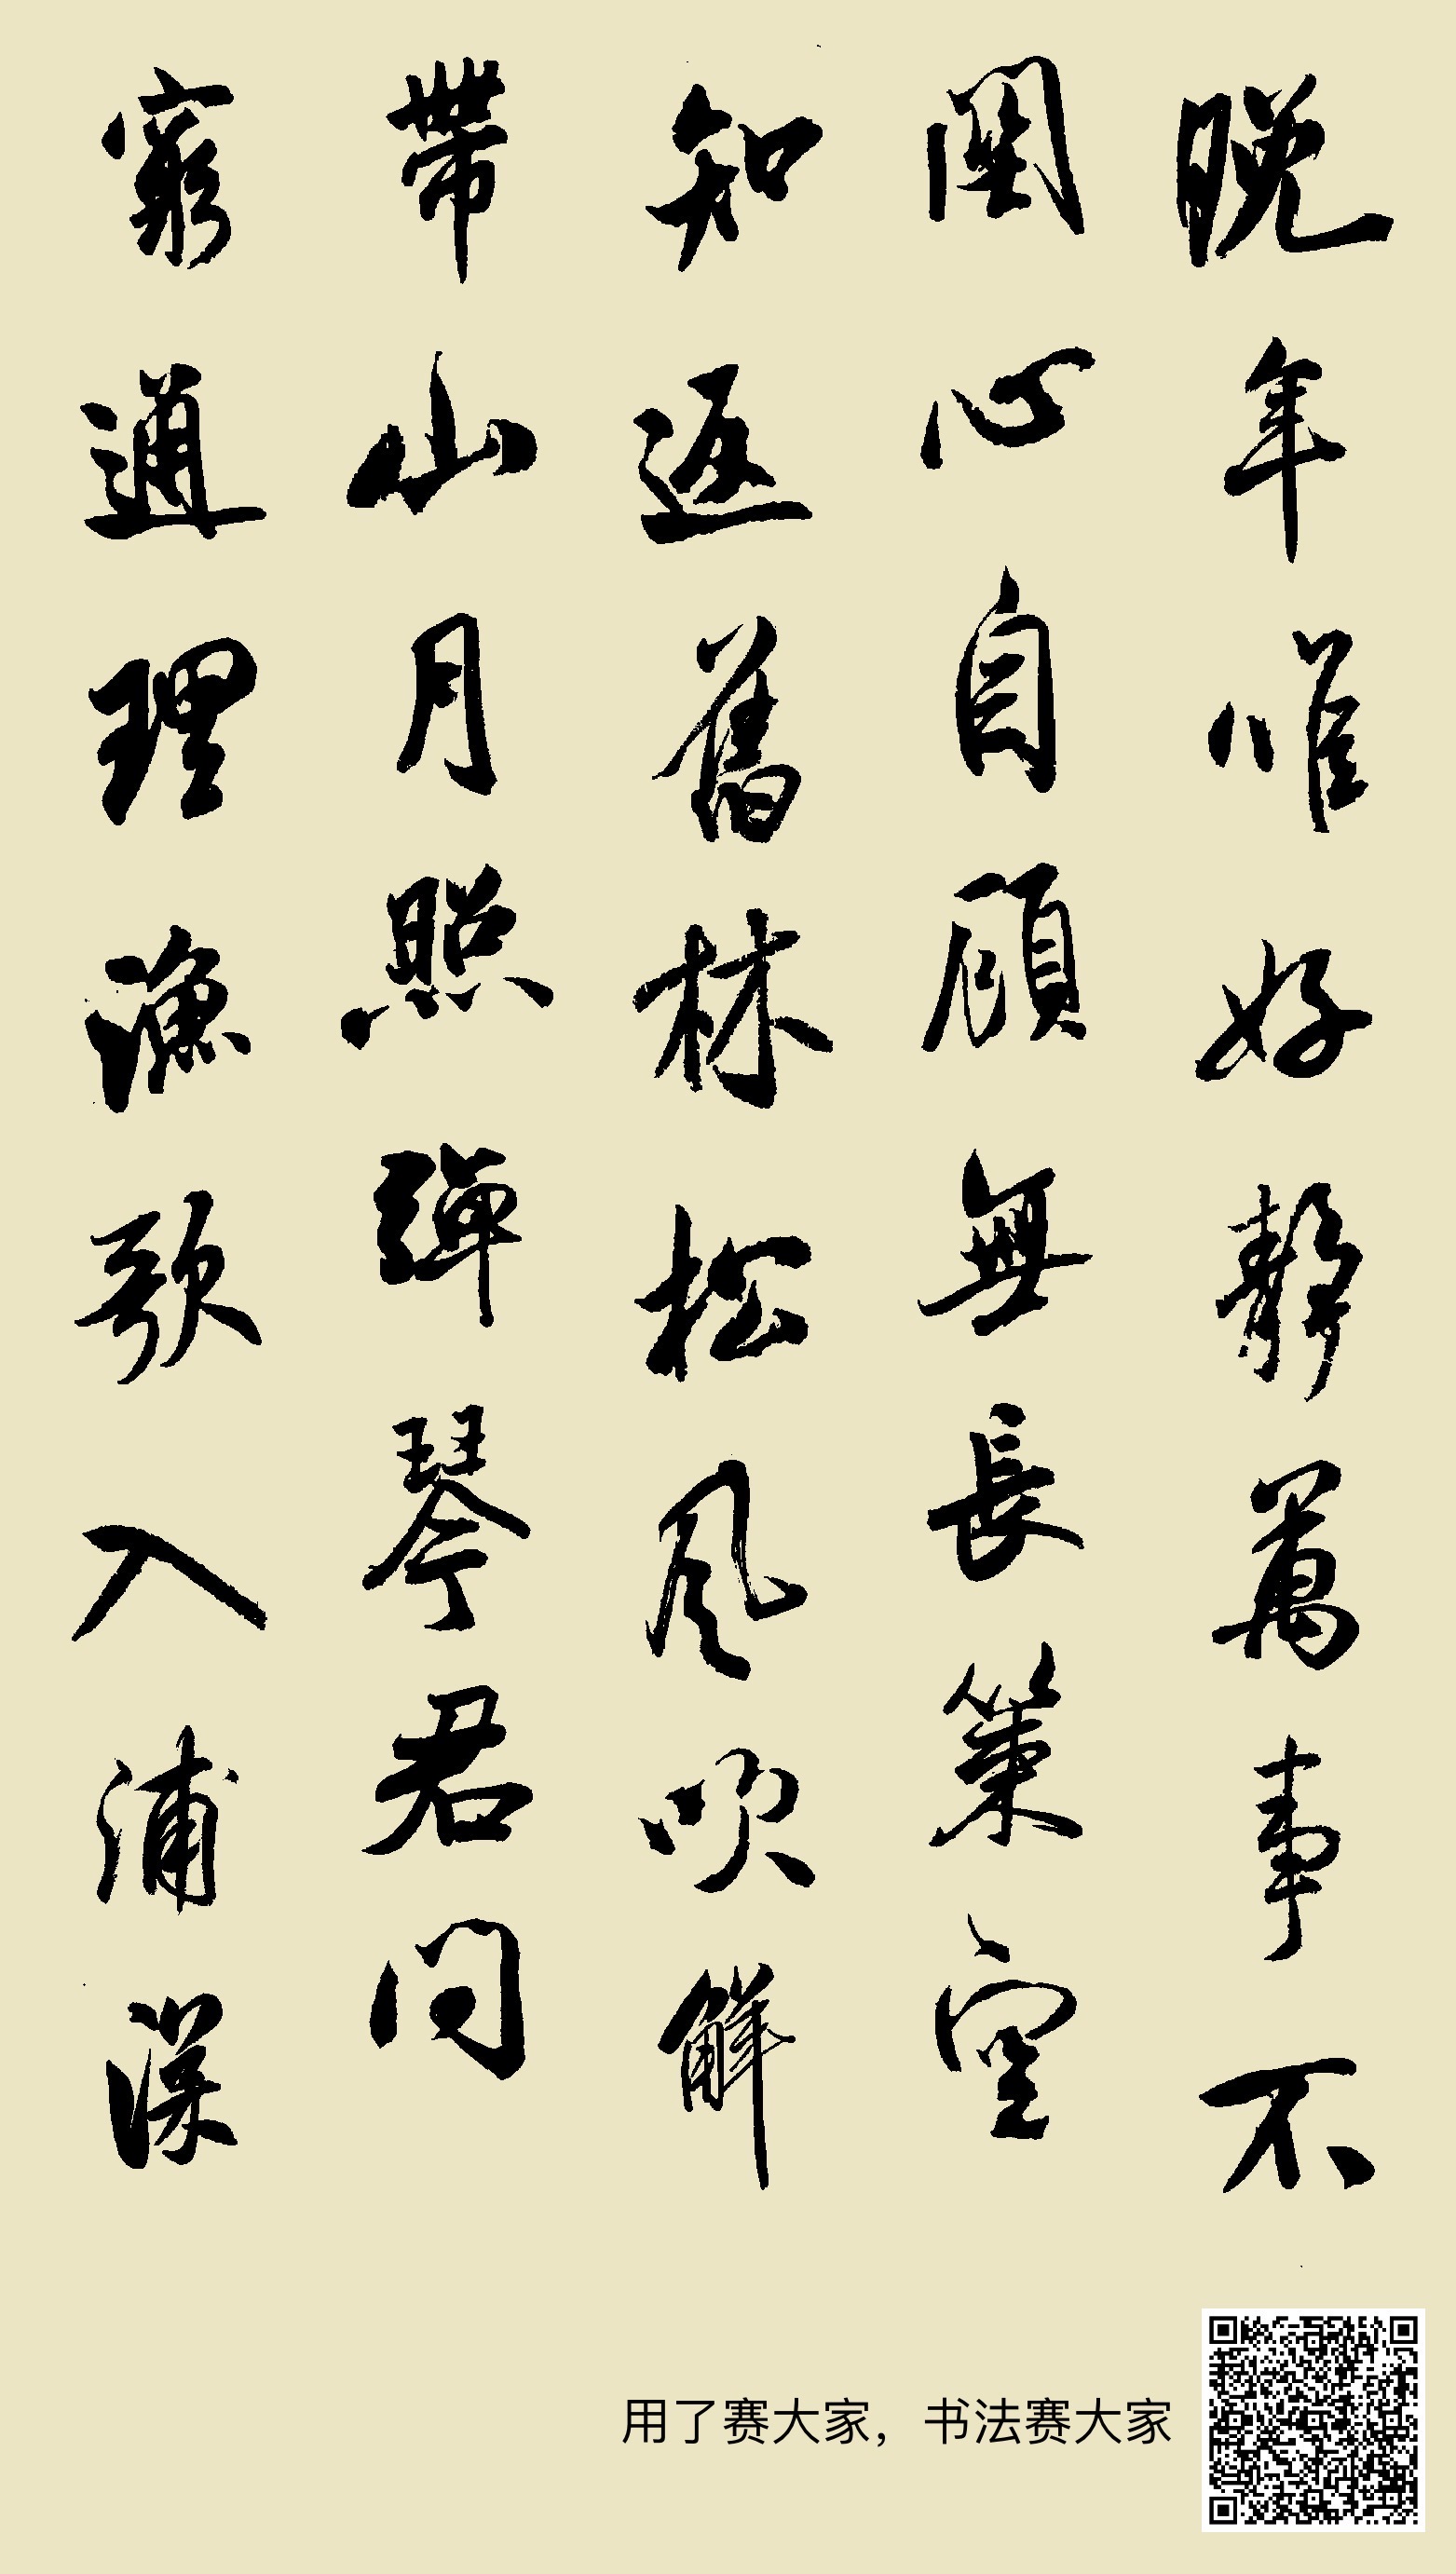 晚年唯好靜萬事不
関心自顧無長策空
知返舊林松風吹解
帶山月照彈琴君問
窮通理漁歌入浦深
用了赛大家，书法赛大家